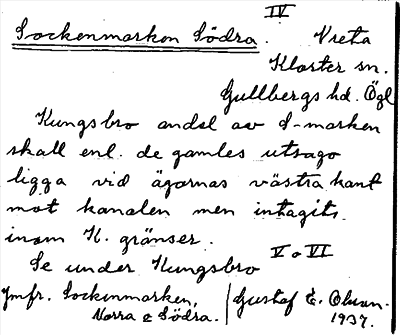 IV
Sockenmarken Södra. Vreta
Kloster sn.
Gullbergs hd. Ögl
Kungsbro andel av S-marken
skall enl. de gamles utsago
ligga vid ägornas västra kant
mot kanalen men intagits
inom K. gränser.
V o VI
Se under Kungsbro
Jmfr. Sockenmarken,
Norra o Södra.
Gustaf E. Olsson.
1937.